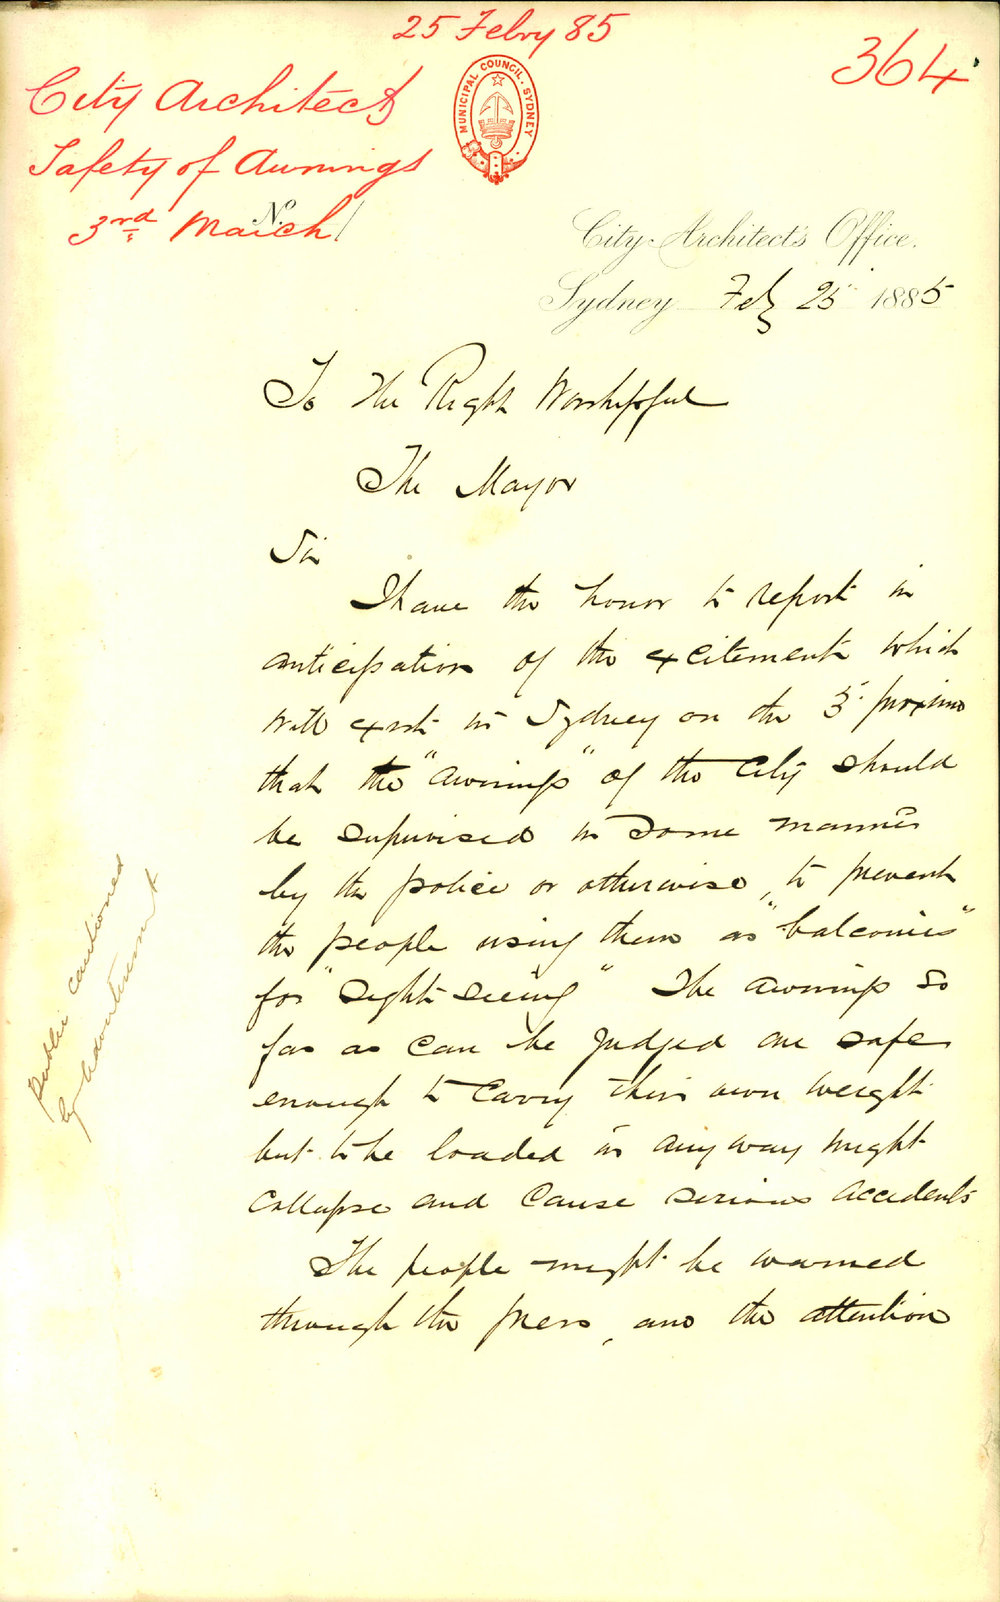 25 Febry 85
364
City Architect
Safety of Awnings
3rd March
MUNICIPAL COUNCIL. SYDNEY
No.
City Architect's Office.
Sydney Feby 25 1885
To The Right Worshipful
The Mayor
Sir
I have the honor to report in
anticipation of the excitement which
will exist in Sydney on the 3d proximo
that the "awnings" of the City should
be supervised in some manner
by the police or otherwise, to prevent
the people using them as "balconies"
for "sight seeing" The awnings so
far as can be judged are safe
enough to carry their own weight
but to be loaded in anyway might
collapse and cause serious accidents
The people might be warned
through the press, and the attention
public cautioned
by advertisement